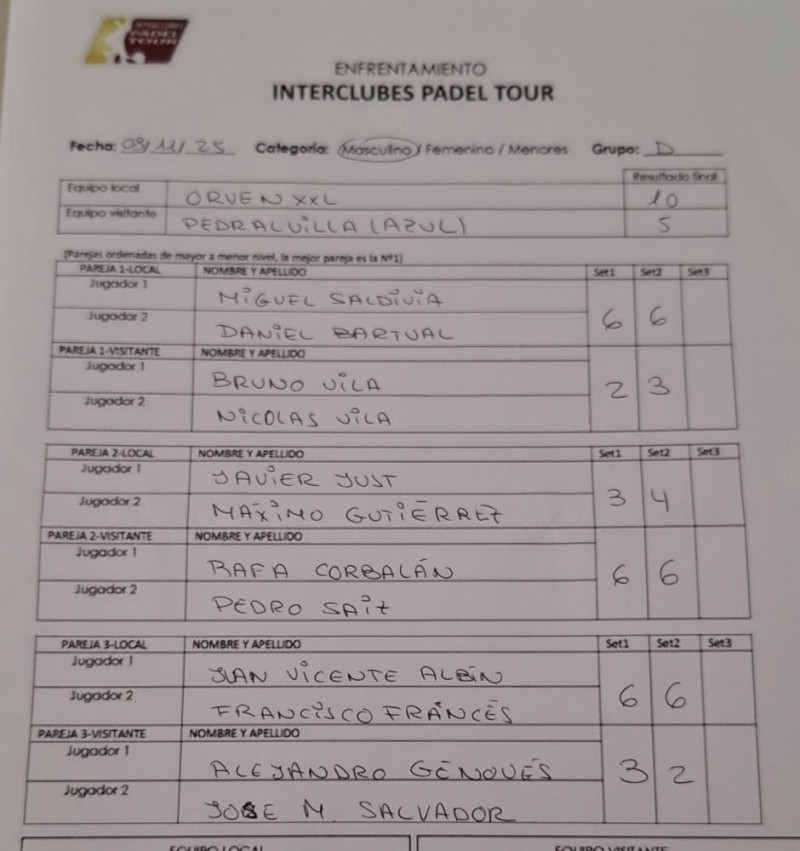 INTERCLUBES
PADEL
TOUR
ENFRENTAMIENTO
INTERCLUBES PADEL TOUR
Fecha: 08/11/25 Categoría: Masculino / Femenino / Menores Grupo: D
Resultado final
Equipo local ORVEN XXL 10
Equipo visitante PEDRALVILLA (AZUL) 5
(Parejas ordenadas de mayor a menor nivel, la mejor pareja es la Nº1)
PAREJA 1-LOCAL NOMBRE Y APELLIDO Set1 Set2 Set3
Jugador 1 MIGUEL SALDIVIA
Jugador 2 DANIEL BARTUAL 6 6
PAREJA 1-VISITANTE NOMBRE Y APELLIDO
Jugador 1 BRUNO VILA 2 3
Jugador 2 NICOLAS VILA
PAREJA 2-LOCAL NOMBRE Y APELLIDO Set1 Set2 Set3
Jugador 1 JAVIER JUST
Jugador 2 MÁXIMO GUTIÉRREZ 3 4
PAREJA 2-VISITANTE NOMBRE Y APELLIDO
Jugador 1 RAFA CORBALÁN 6 6
Jugador 2 PEDRO SAIZ
PAREJA 3-LOCAL NOMBRE Y APELLIDO Set1 Set2 Set3
Jugador 1 JUAN VICENTE ALBÍN
Jugador 2 FRANCISCO FRANCÉS 6 6
PAREJA 3-VISITANTE NOMBRE Y APELLIDO
Jugador 1 ALEJANDRO GENOVÉS 3 2
Jugador 2 JOSE M. SALVADOR
EQUIPO LOCAL EQUIPO VISITANTE